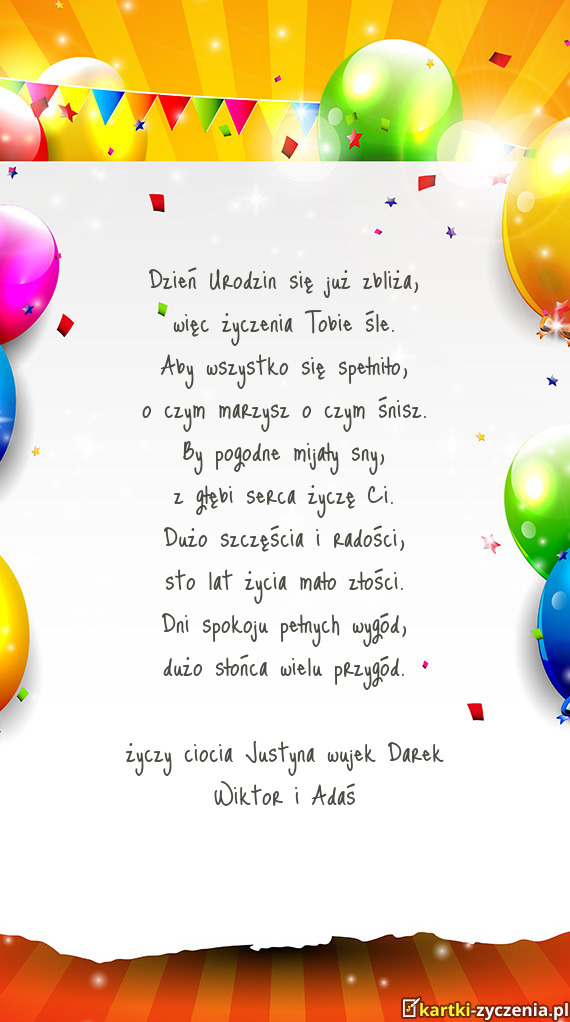 Dzień Urodzin się już zbliża,
więc życzenia Tobie śle.
Aby wszystko się spełniło,
o czym marzysz o czym śnisz.
By pogodne mijały sny,
z głębi serca życzę Ci.
Dużo szczęścia i radości,
sto lat życia mało złości.
Dni spokoju pełnych wygód,
dużo słońca wielu przygód.
życzy ciocia Justyna wujek Darek
Wiktor i Adaś
kartki-zyczenia.pl